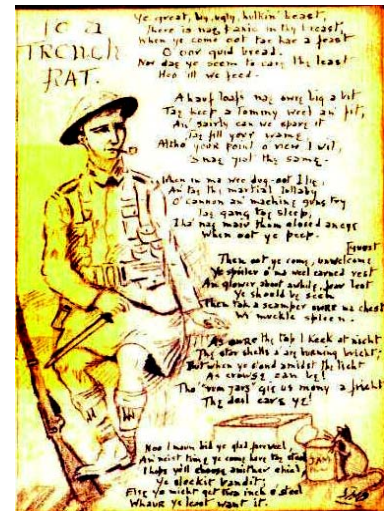 To a
TRENCH
RAT.
Ye great, big, ugly, hulkin' beast,
There is nae panic in thy breast,
When ye come oot tae hae a feast
O oor guid bread.
Nor dae ye seem to care the least
Hoo ill we feed.
A hauf loaf's nae owre big a bit
Tae keep a Tommy weel an' fit,
An' sairly can we spare it
Tae fill your wame,
Altho' your point o' view I wit,
Is nae jist the same.
When in ma wee dug-oot I lie,
An' tae the martial lullaby
O' cannon an' machine guns try
Tae gang tae sleep,
I hae nae mair than closed an eye
When oot ye peep.
Then oot ye come, unwelcome guest
Ye spoiler o' ma weel earned rest
An' glower aboot awhile, fear lest
Ye should be seen
Then tak a scamper owre ma chest
Wi' muckle spleen.
As owre the top I keek at nicht
The star shells are burning bricht;
But when ye stand amidst the licht
As crouse can be!
Tho' 'twa yairs' gie us mony a fricht
The deil care ye!
Noo I maun bid ye glad fareweel,
An' neist time ye come here tae steal
I hope ye'll choose anither chiel,
Ye bandit;
Else ye micht get twa inch o' steel
Whaur ye least want it.
JAM